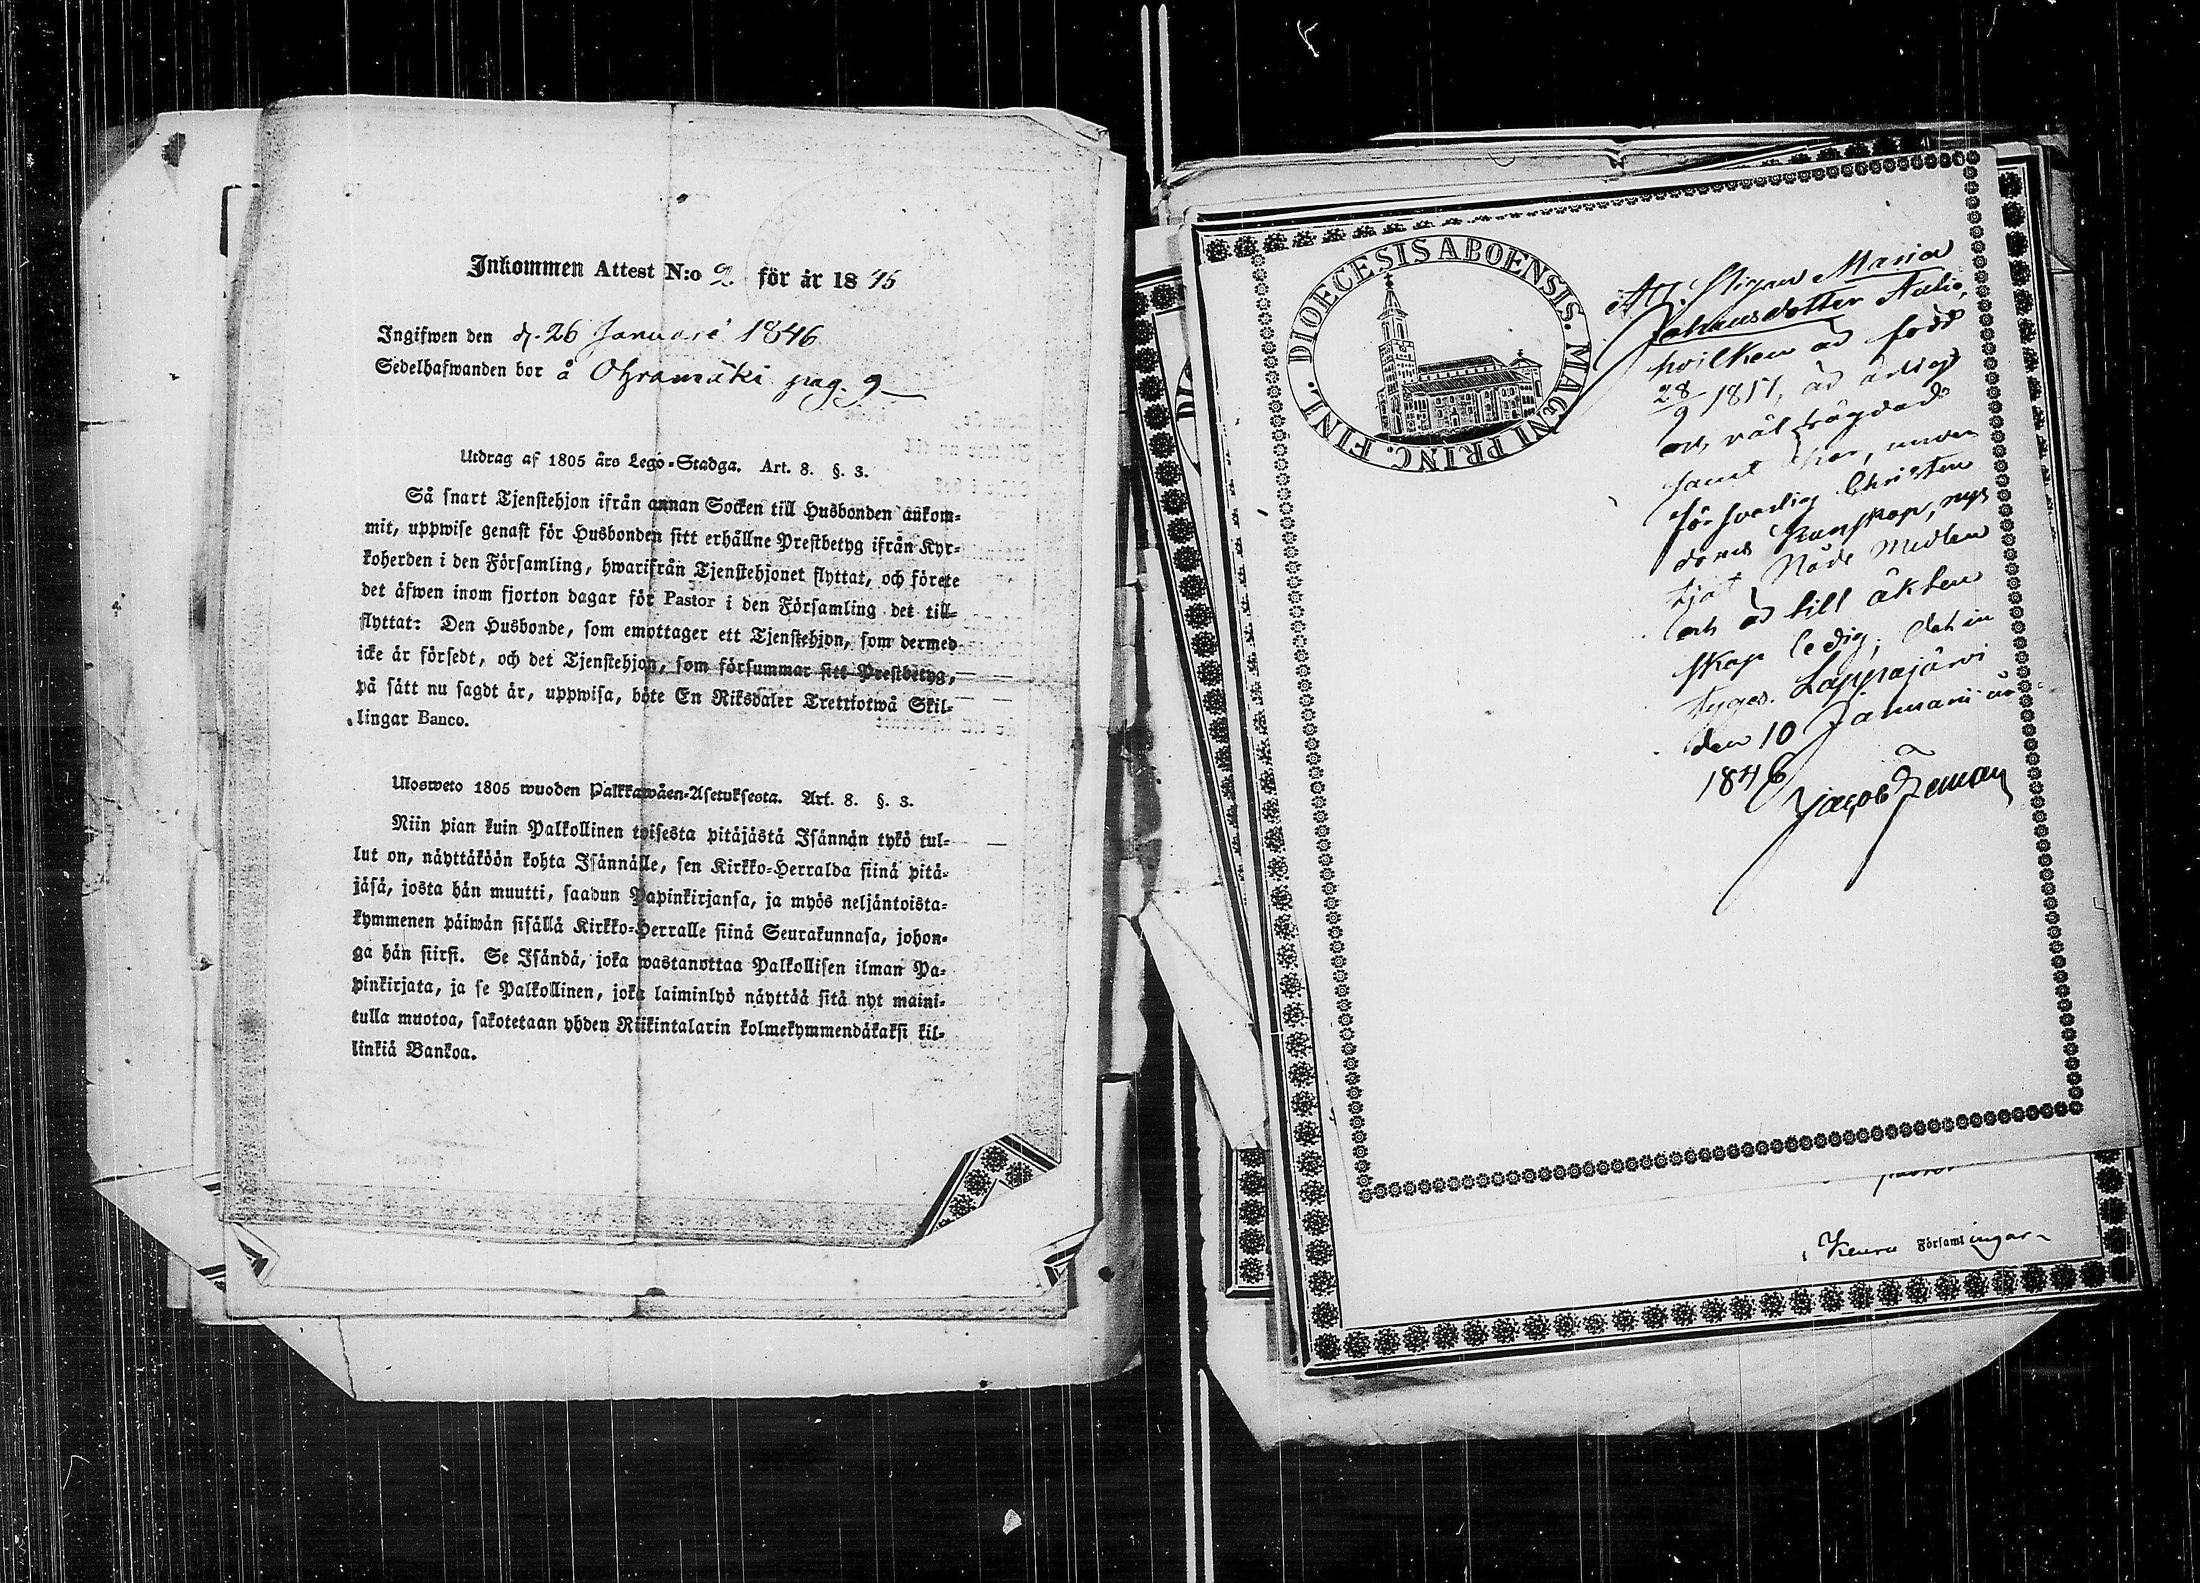 Inkommen Attest N:o 2 för år 1845
Ingifwen den d. 26 Januarii 1846
Sedelhafwanden bor å Ohramäki pag. 9
Utdrag af 1805 års Lego-Stadga. Art. 8. §. 3.
Så snart Tjenstehjon ifrån annan Socken till Husbonden ankom-
mit, uppwise genast för Husbonden sitt erhållne Prestbetyg ifrån Kyr-
koherden i den Församling, hwarifrån Tjenstehjonet flyttat, och förete
det äfwen inom fjorton dagar för Pastor i den Församling det till-
flyttat: Den Husbonde, som emottager ett Tjenstehjon, som dermed
icke är försedt, och det Tjenstehjon, som försummar sitt Prestbetyg,
på sätt nu sagdt är, uppwisa, böte En Riksdaler Trettiotwå Skil-
lingar Banco.
Ulosweto 1805 wuoden Palkkawäen-Asetuksesta. Art. 8. §. 3.
Niin pian kuin Palkollinen toisesta pitäjästä Isännän tykö tul-
lut on, näyttäköön kohta Isännälle, sen Kirkko-Herralda siinä pitä-
jäsä, josta hän muutti, saadun Papinkirjansa, ja myös neljäntoista-
kymmenen päiwän sisällä Kirkko-Herralle siinä Seurakunnasa, johon-
ga hän siirsi. Se Isändä, joka wastanottaa Palkollisen ilman Pa-
pinkirjata, ja se Palkollinen, joka laiminlyö näyttää sitä nyt maini-
tulla muotoa, sakotetaan yhden Riikintalarin kolmekymmendäkaksi kil-
linkiä Bankoa.
DIOECESIS ABOENSIS. MAGNI PRINC. FINL.
Att Pigan Maria
Johansdotter Aulio,
hvilken är född
28/9 1817, är ärligt
och väl frägdad
samt har, under
försvarlig Christen
doms kunskap, nyt
tjat Nåde Medlen
och är till äkten
skap ledig; det in
tygas. Lappajärvi
den 10 Januarii
1846
Jacob
Keuru Församlingar